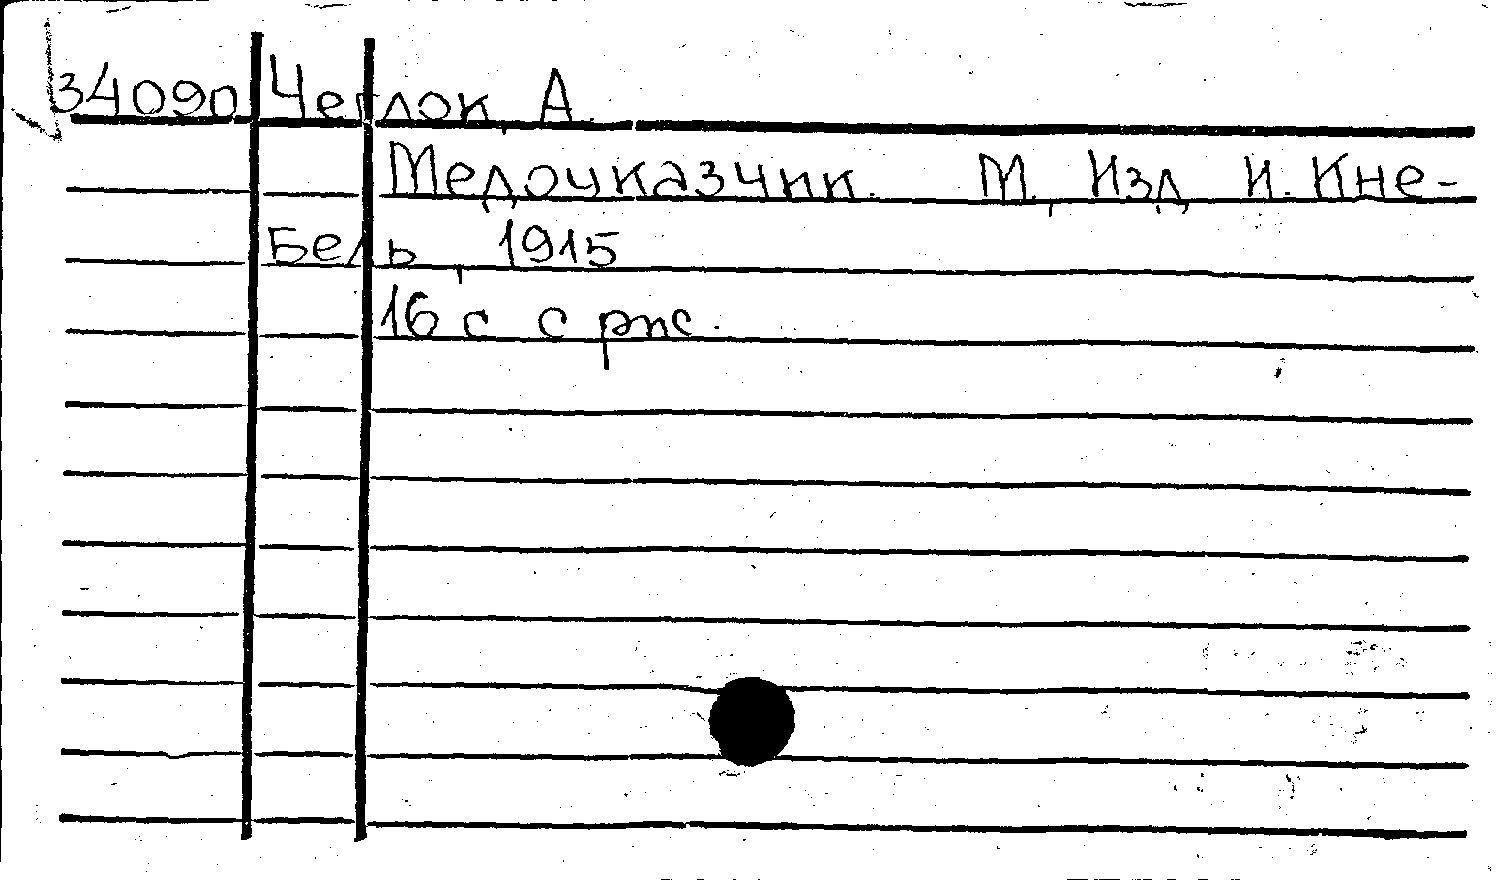 34090 Чеглок, А.
Медоуказчик. М., Изд. И. Кне-
бель, 1915
16 с с рис.